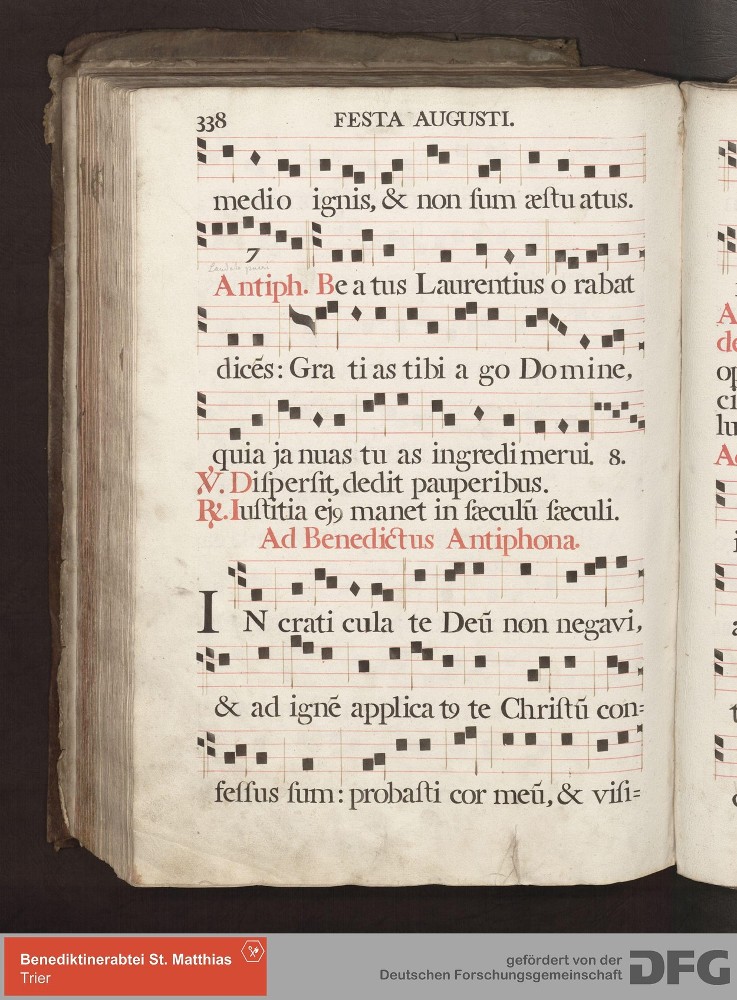 338 FESTA AUGUSTI.
medio ignis, & non ſum æſtu atus.
7
Antiph. Be a tus Laurentius o rabat
dicẽs: Gra ti as tibi a go Domine,
quia ja nuas tu as ingredi merui. 8.
℣. Diſperſit, dedit pauperibus.
℟. Iuſtitia ejꝰ manet in ſæculũ ſæculi.
Ad Benedictus Antiphona.
IN crati cula te Deũ non negavi,
& ad ignẽ applica tꝰ te Chriſtũ con=
feſſus ſum: probaſti cor meũ, & viſi=
Benediktinerabtei St. Matthias
Trier
gefördert von der
Deutschen Forschungsgemeinschaft
DFG